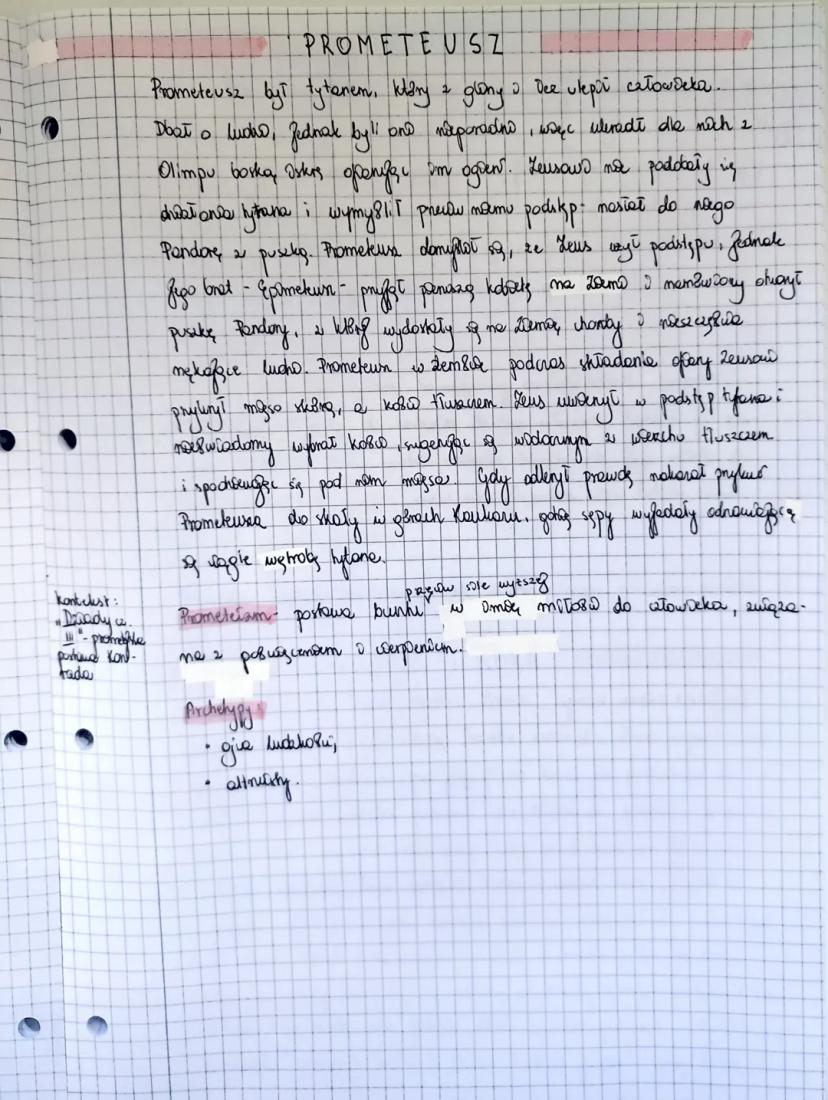 PROMETEUSZ
Prometeusz był tytanem, który z gliny i łez ulepił człowieka.
Dbał o ludzi, jednak byli oni nieporadni, więc ukradł dla nich z
Olimpu boską iskrę ofiarując im ogień. Zeusowi nie podobały się
działania tytana i wymyślił przeciw niemu podstęp: nasłał do niego
Pandorę z puszką. Prometeusz domyślał się, że Zeus użył podstępu, jednak
jego brat - Epimeteusz - przyjął pierwszą kobietę na ziemi i namówiony otworzył
puszkę Pandory, z której wydostały się na ziemię choroby i nieszczęścia
nękające ludzi. Prometeusz w zemście podczas składania ofiary Zeusowi
przykrył mięso skórą, a kości tłuszczem. Zeus uwierzył w podstęp tytana i
nieświadomy wybrał kości, sugerując się widocznym z wierzchu tłuszczem
i spodziewając się pod nim mięsa. Gdy odkrył prawdę nakazał przykuć
Prometeusza do skały w górach Kaukazu, gdzie sępy wyjadały odnawiającą
się ciągle wątrobę tytana.
przeciw sile wyższej
Prometeizm - postawa buntu w imię miłości do człowieka, związa-
na z poświęceniem i cierpieniem.
kontekst:
"Dziady cz.
III" - prometejska
postawa Kon-
rada
Archetypy:
• ojca ludzkości;
• altruisty.